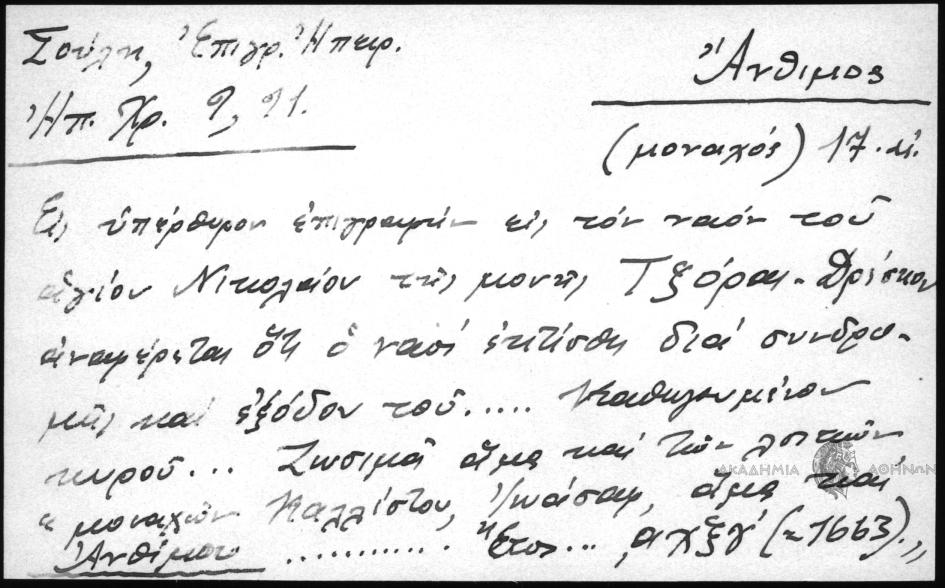 Σούλη, Ἐπιγρ. Ἠπειρ.
Ἠπ. Χρ. 9, 91.
Ἄνθιμος
(μοναχός) 17. αἰ.
Εἰς ὑπέρθυρον ἐπιγραφήν εἰς τόν ναόν τοῦ
ἁγίου Νικολάου τῆς μονῆς Τζόρας - Δρίσκου
ἀναφέρεται ὅτι ὁ ναός ἐκτίσθη διά συνδρο-
μῆς καί ἐξόδου τοῦ..... καθηγουμένου
κυροῦ... Ζωσιμᾶ ἅμα καί τῶν λοιπῶν
ΑΚΑΔΗΜΙΑ ΑΘΗΝΩΝ
" μοναχῶν Καλλίστου, Ἰωάσαφ, ἅμα καί
Ἀνθίμου ........... Ἔτος... ͵αχξγ΄ (= 1663).„